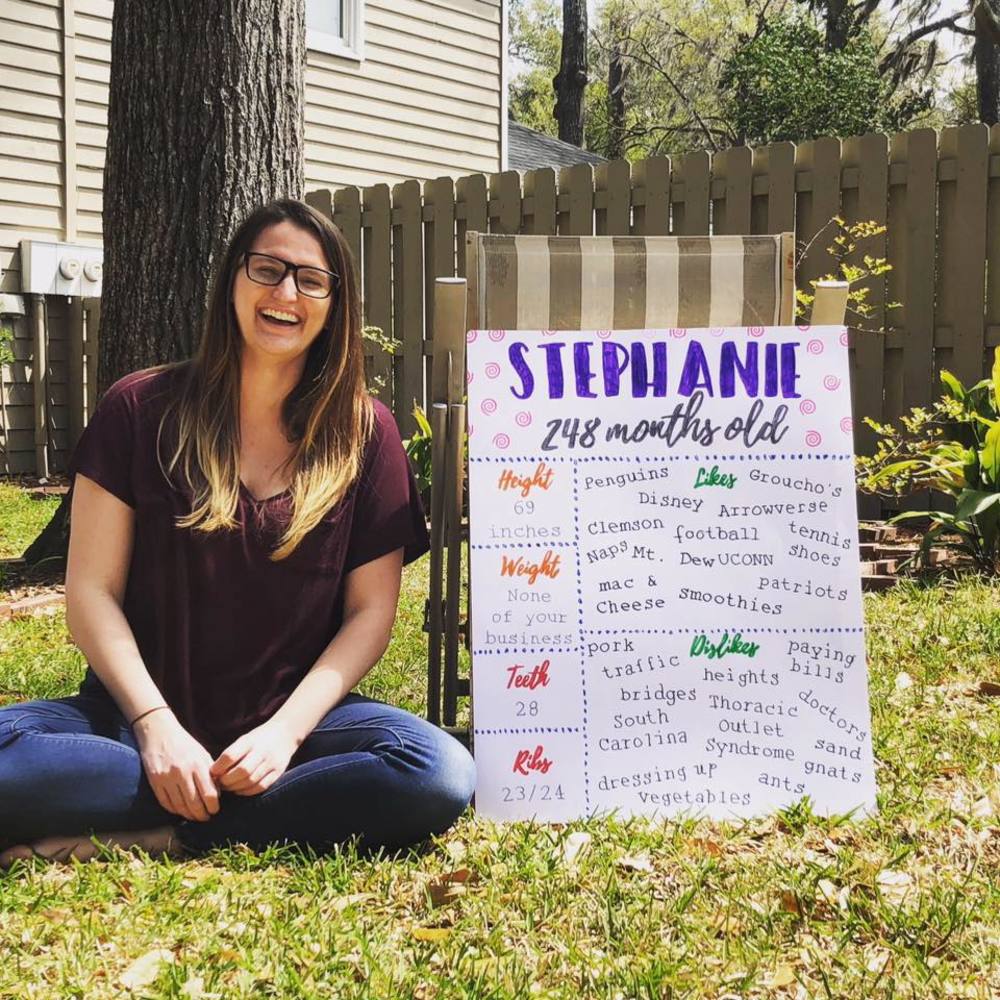 STEPHANIE
248 months old
Height
69
inches
Weight
None
of your
business
Teeth
28
Ribs
23/24
Likes
Penguins
Groucho's
Disney
Arrowverse
Clemson
football
tennis
shoes
Naps
Mt. Dew
UCONN
mac &
Cheese
smoothies
patriots
Dislikes
pork
paying
bills
traffic
heights
bridges
Thoracic
Outlet
Syndrome
doctors
South
Carolina
sand
gnats
dressing up
ants
vegetables